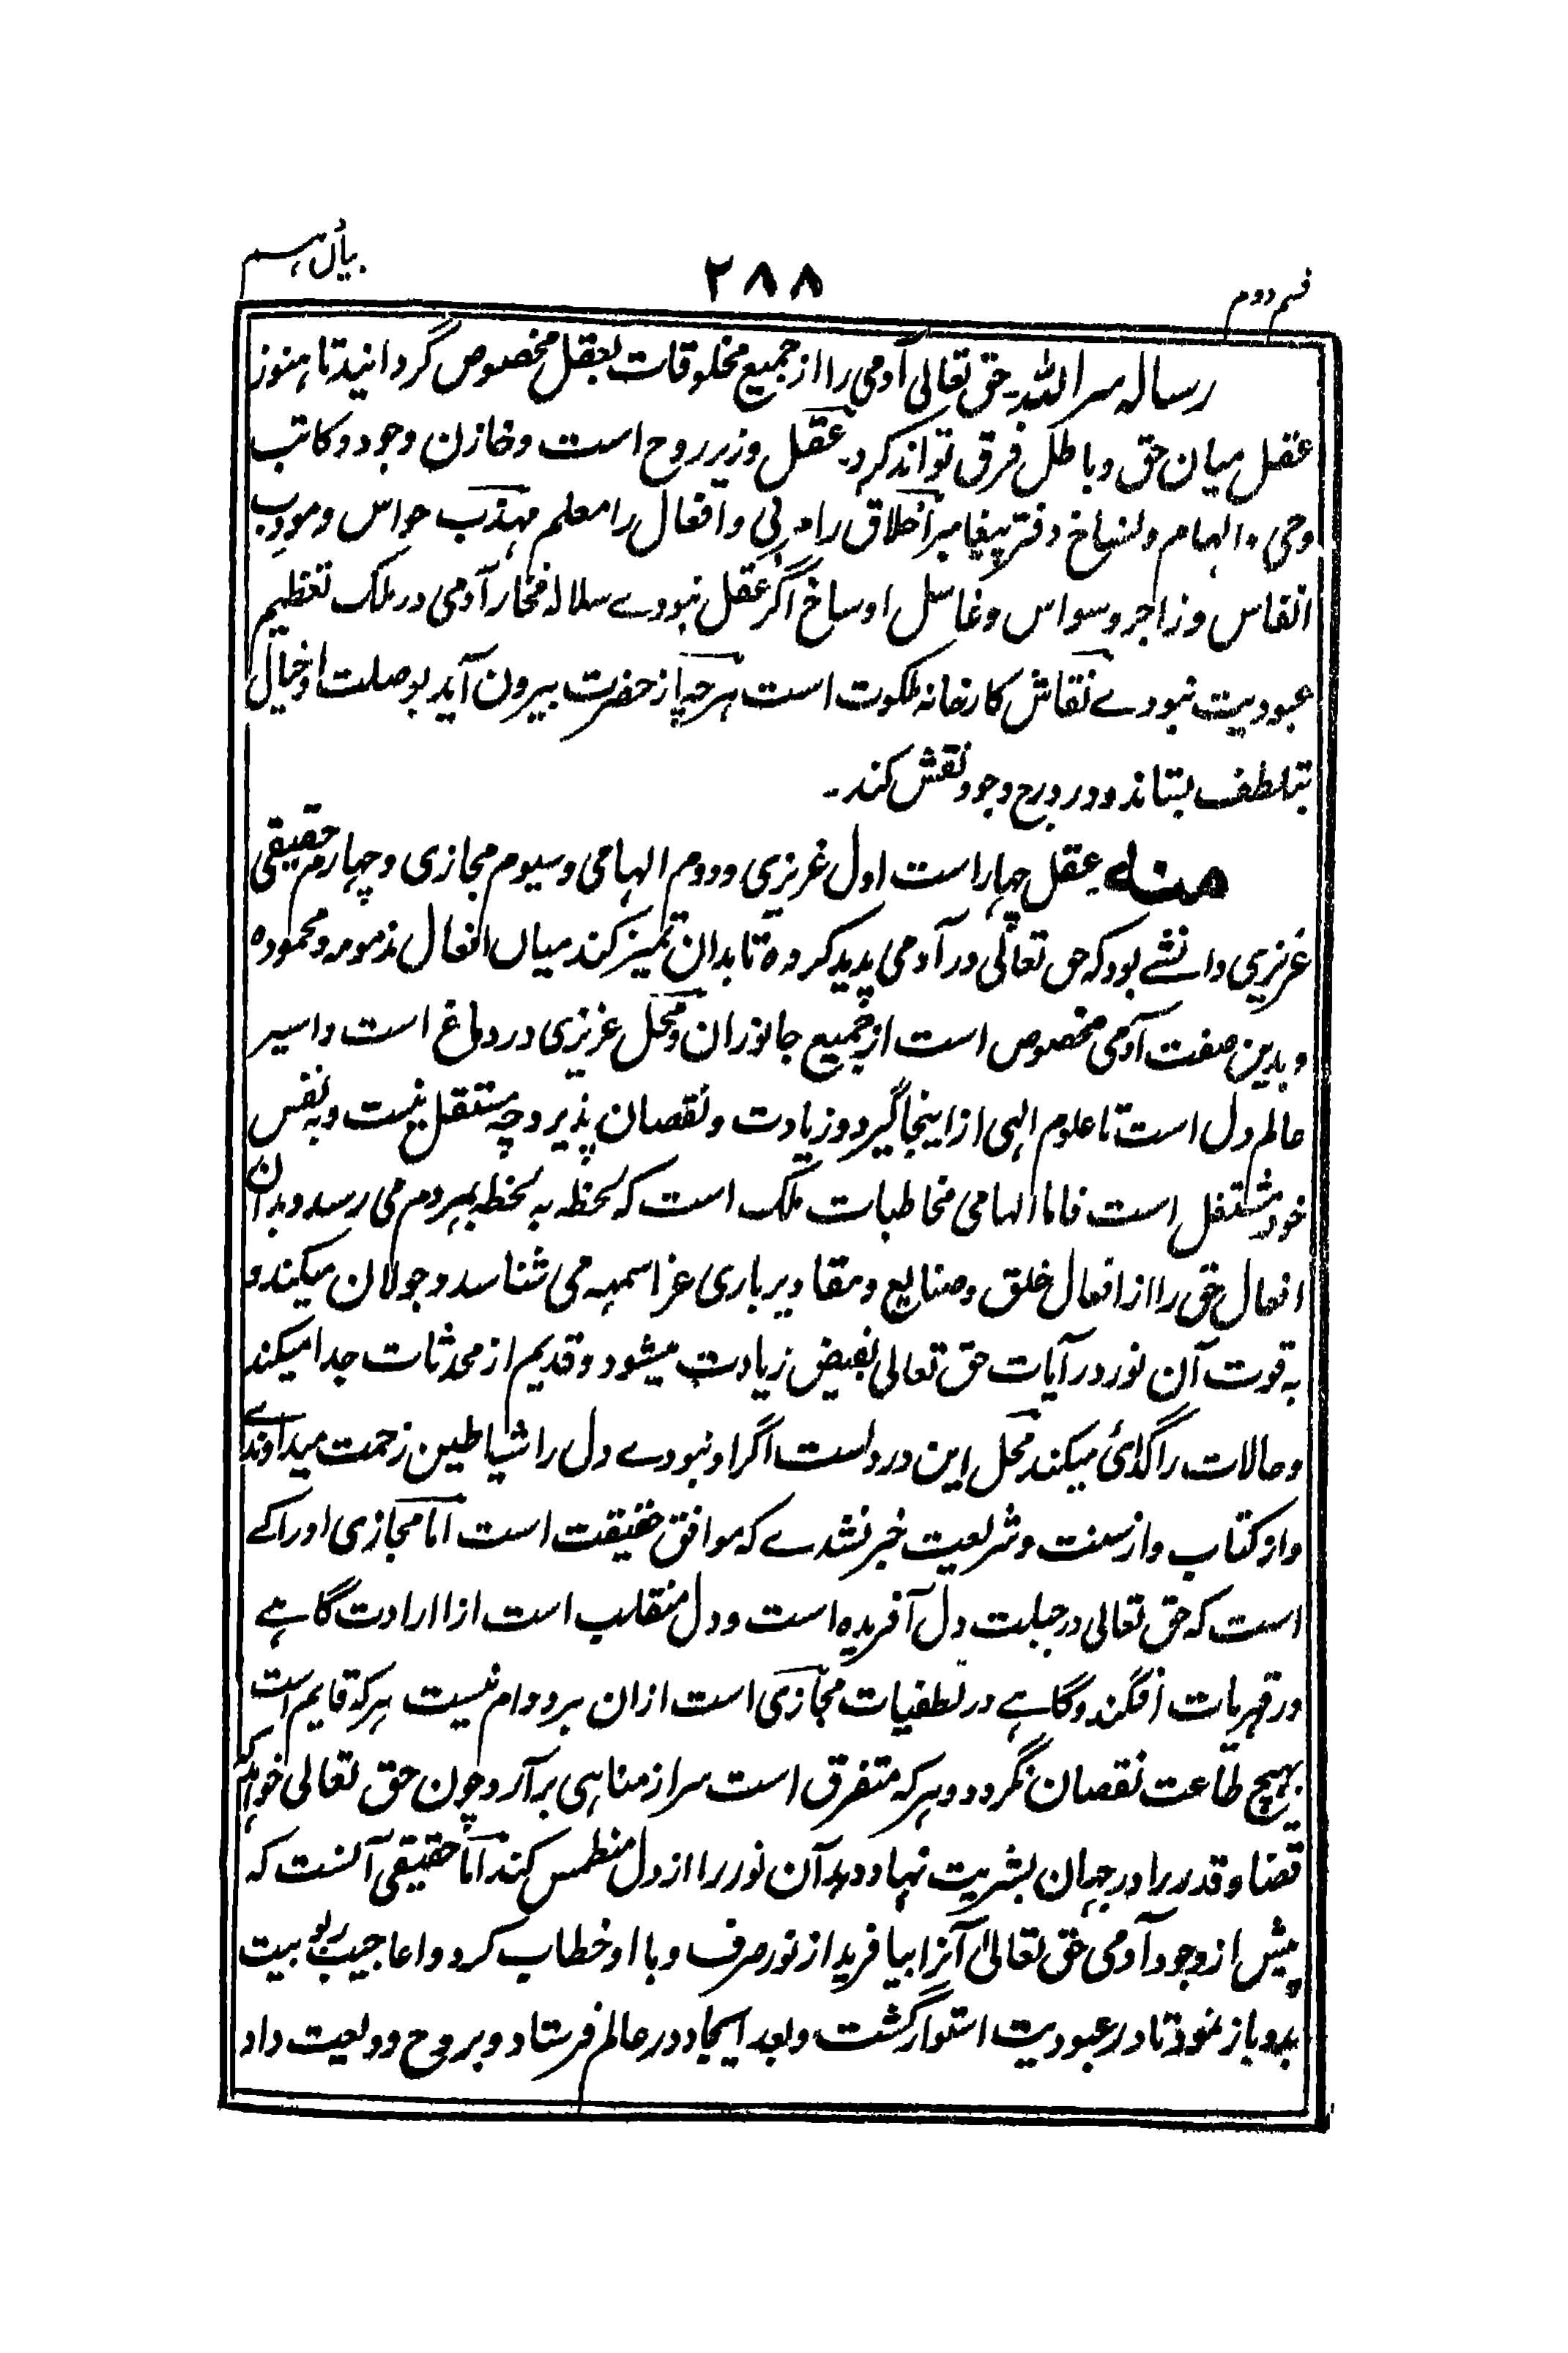 قسم دوم
۲۸۸
رسالہ سر اللہ۔ حق تعالی آدمی را از جمیع مخلوقات بعقل مخصوص گردانید تا بنور
عقل میان حق و باطل فرق تواند کرد۔ عقل وزیر روح است و خازن وجود و کاتب
وحی و الہام و نساخ دفتر پیغامبر اخلاق را مربی و افعال را معلم مہذب حواس و مودب
انفاس و زاجر وسواس و غاسل اوساخ اگر عقل نبودے سلالہ فخار آدمی در ملک تعظیم
عبودیت نبودے نقاش کارخانہ ملکوت است ہرچہ از حضرت بیرون آید بوصلت او خیال
بتلطف بستاند و در درج وجود نقش کند۔
منہ عقل چہار است اول غریزی و دوم الہامی و سیوم مجازی و چہارم حقیقی
غریزی دانشے بود کہ حق تعالی در آدمی پدید کردہ تا بدان تمیز کند میاں افعال مذمومہ و محمودہ
و بدین صفت آدمی مخصوص است از جمیع جانوران و محل غریزی در دماغ است و اسیر
عالم دل است تا علوم الہی از اینجا گیرد و زیادت و نقصان پذیرد چہ مستقل نیست و بہ نفس
خود مشتغل است فاما الہامی مخاطبات ملک است کہ لحظہ بہ لحظہ بہر دم می رسد و بدان
افعال حق را از افعال خلق و صنایع و مقادیر باری عز اسمہ می شناسد و جولان میکند و
بہ قوت آن نور در آیات حق تعالی بفیض زیادت میشود و قدیم از محدثات جدا میکند
و حالات را گدائ میکند محل این در دلست اگر او نبودے دل را شیاطین زحمت میداوندے
و از کتاب و از سنت و شریعت خبر نشدے کہ موافق حقیقت است اما مجازی ادراکے
است کہ حق تعالی در جبلت دل آفریدہ است و دل منقلب است از ارادت گاہے
در قہریات افگند و گاہے در لطفیات مجازی است از ان بر دوام نیست ہرکہ قایم است
بہیچ طاعت نقصان نگردد و ہرکہ متفرق است سر از مناہی برآرد چون حق تعالی خواہد کہ
قضا و قدر را در جہان بشریت نہاد دہد آن نور را از دل منطمس کند اما حقیقی آنست کہ
پیش از وجود آدمی حق تعالیٰ آنرا بیافرید از نور صرف و با او خطاب کرد و اعاجیب ربوبیت
بدو باز نمود تا در عبودیت استوار گشت و بعد ایجاد در عالم فرستاد و بر وح ودیعیت داد